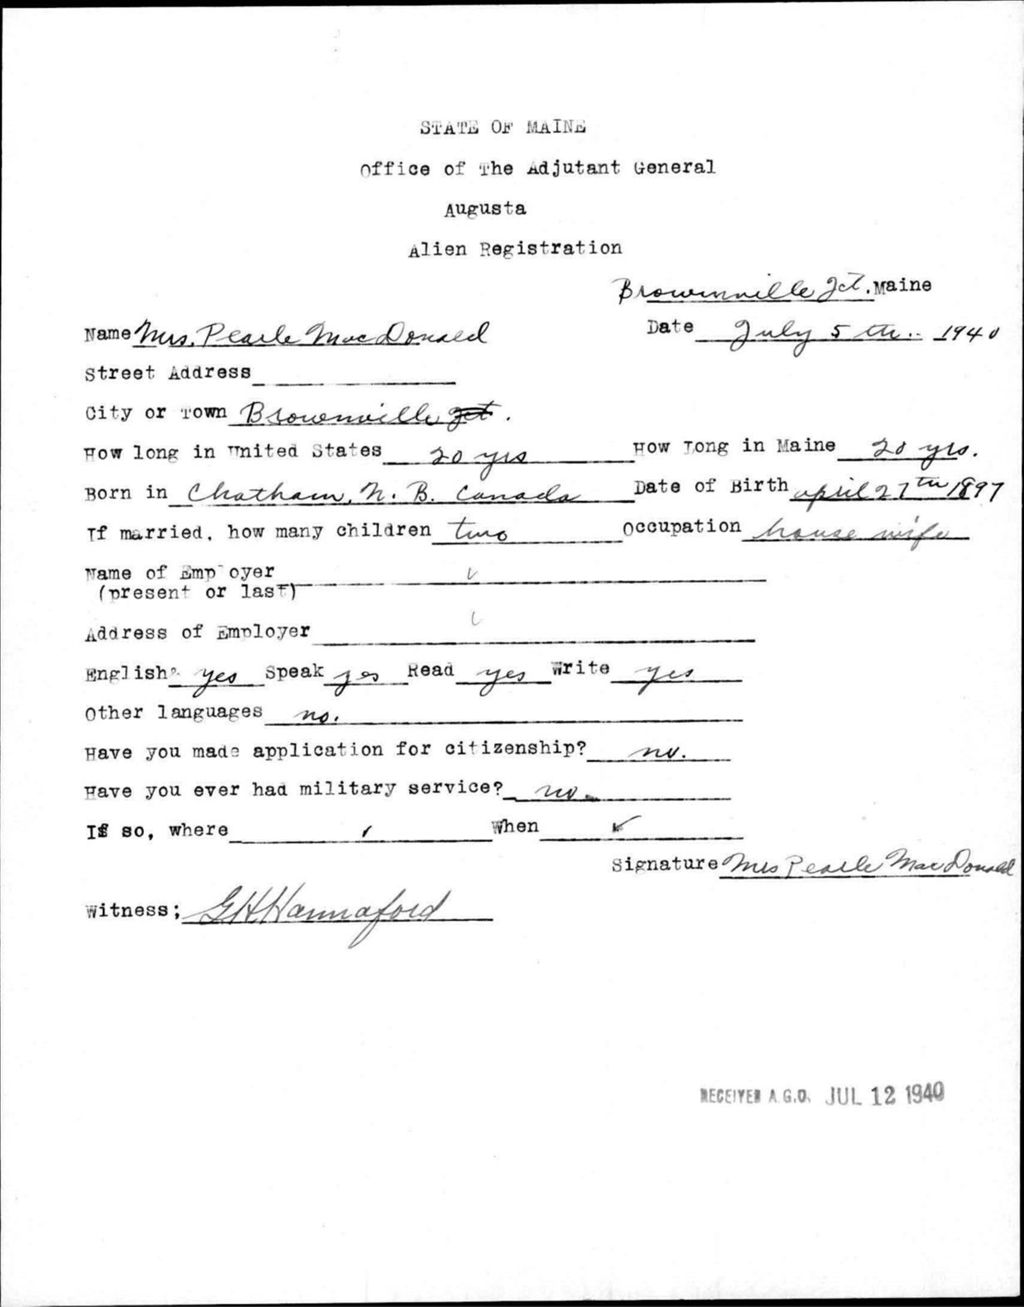 STATE OF MAINE
Office of The Adjutant General
Augusta
Alien Registration
Brownville Jct. Maine
Name Mrs. Pearle MacDonald Date July 5th.. 1940
Street Address
City or Town Brownville Jct.
How long in United States 20 yrs How Long in Maine 20 yrs.
Born in Chatham, N. B. Canada Date of Birth april 27th 1897
If married, how many children two Occupation house wife
Name of Employer
(present or last)
Address of Employer
English? yes Speak yes Read yes Write yes
Other languages no.
Have you made application for citizenship? no.
Have you ever had military service? no
If so, where When
Signature Mrs Pearle MacDonald
Witness; G H Hannaford
RECEIVED A.G.O. JUL 12 1940